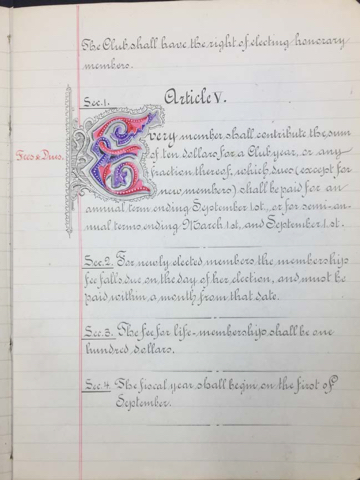 The Club shall have the right of electing honorary
members.
Sec. 1. Article V.
Fees & Dues.
Every member shall contribute the sum
of ten dollars for a Club year, or any
fraction thereof, which dues (except for
new members) shall be paid for an
annual term ending September 1st, or for semi-an-
nual terms ending March 1st, and September 1st.
Sec. 2. For newly elected members the membership
fee falls due on the day of her election, and must be
paid within a month from that date.
Sec. 3. The fee for life-membership shall be one
hundred dollars.
Sec. 4. The fiscal year shall begin on the first of
September.